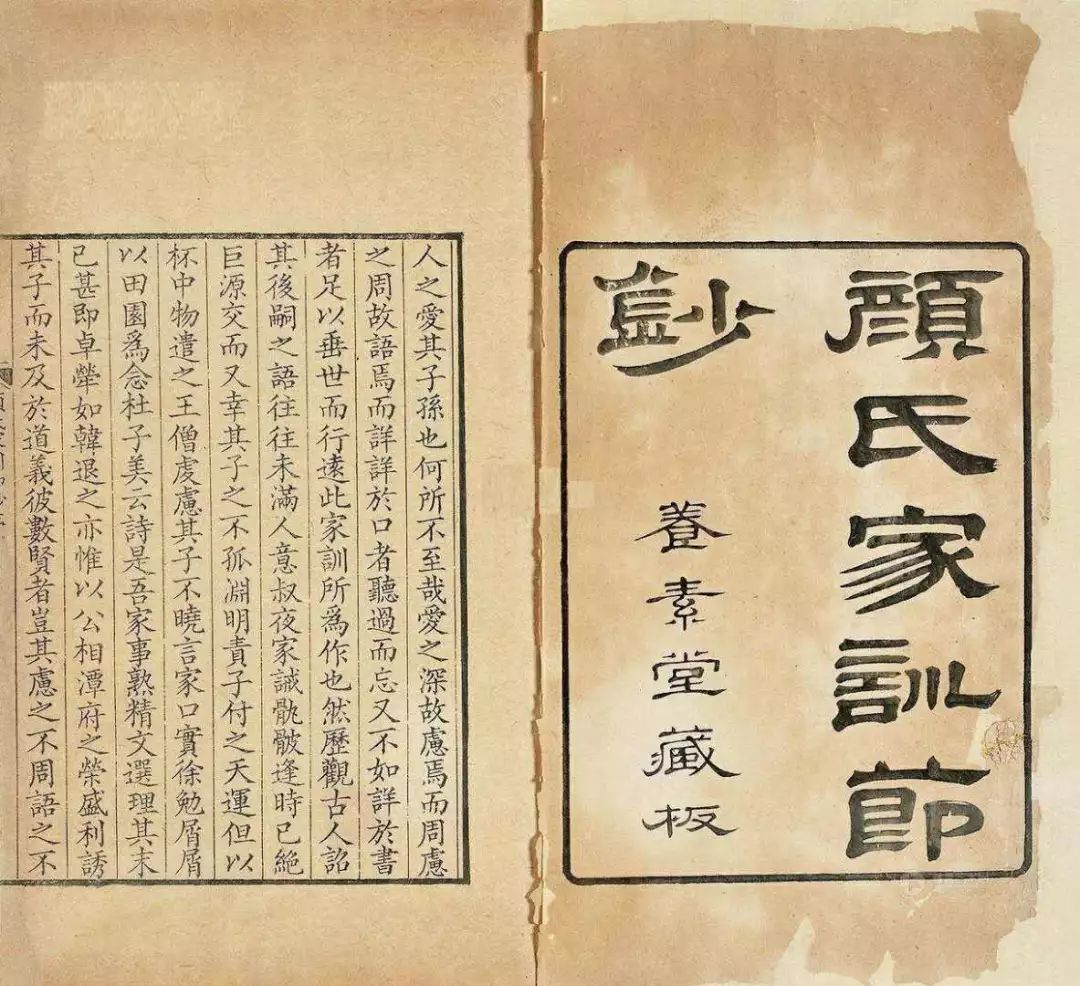 顏氏家訓節
鈔
養素堂藏板
人之愛其子孫也何所不至哉愛之深故慮焉而周慮
之周故語焉而詳詳於口者聽過而忘又不如詳於書
者足以垂世而行遠此家訓所爲作也然歷觀古人詔
其後嗣之語往往未滿人意叔夜家誡骩骳逢時已絕
巨源交而又幸其子之不孤淵明責子付之天運但以
杯中物遣之王僧虔慮其子不曉言家口實徐勉屑屑
以田園爲念杜子美云詩是吾家事熟精文選理其末
已甚即卓犖如韓退之亦惟以公相潭府之榮盛利誘
其子而未及於道義彼數賢者豈其慮之不周語之不